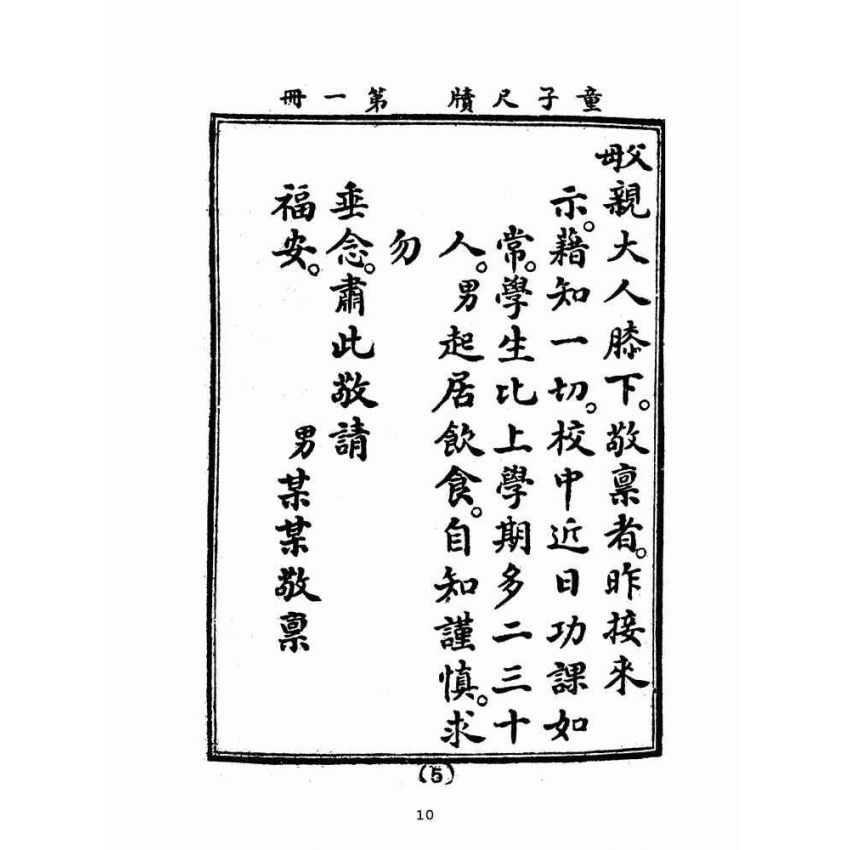 童子尺牘 第一冊
父母親大人膝下。敬稟者。昨接來
示。藉知一切。校中近日功課如
常。學生比上學期多二三十
人。男起居飲食。自知謹慎。求
勿
垂念。肅此敬請
福安。 男某某敬稟
(5)
10